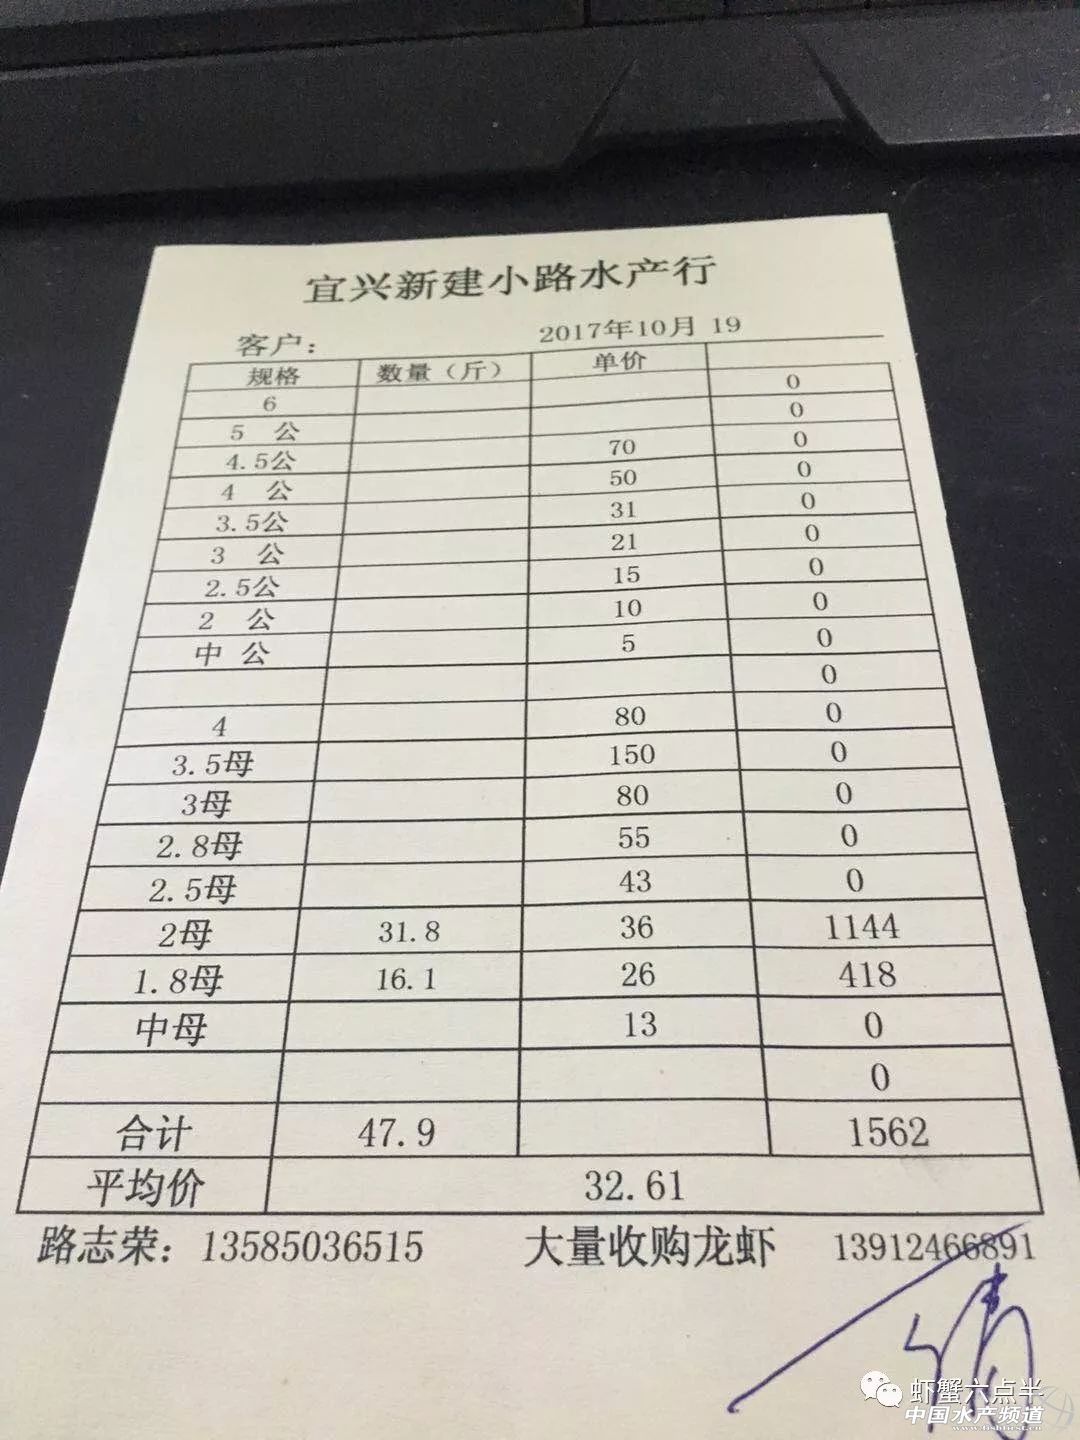 宜兴新建小路水产行
客户： 2017年10月 19
规格 数量（斤） 单价
6 0
5 公 0
4.5公 70 0
4 公 50 0
3.5公 31 0
3 公 21 0
2.5公 15 0
2 公 10 0
中 公 5 0
0
4 80 0
3.5母 150 0
3母 80 0
2.8母 55 0
2.5母 43 0
2母 31.8 36 1144
1.8母 16.1 26 418
中母 13 0
0
合计 47.9 1562
平均价 32.61
路志荣：13585036515 大量收购龙虾 13912466891
虾蟹六点半
中国水产频道